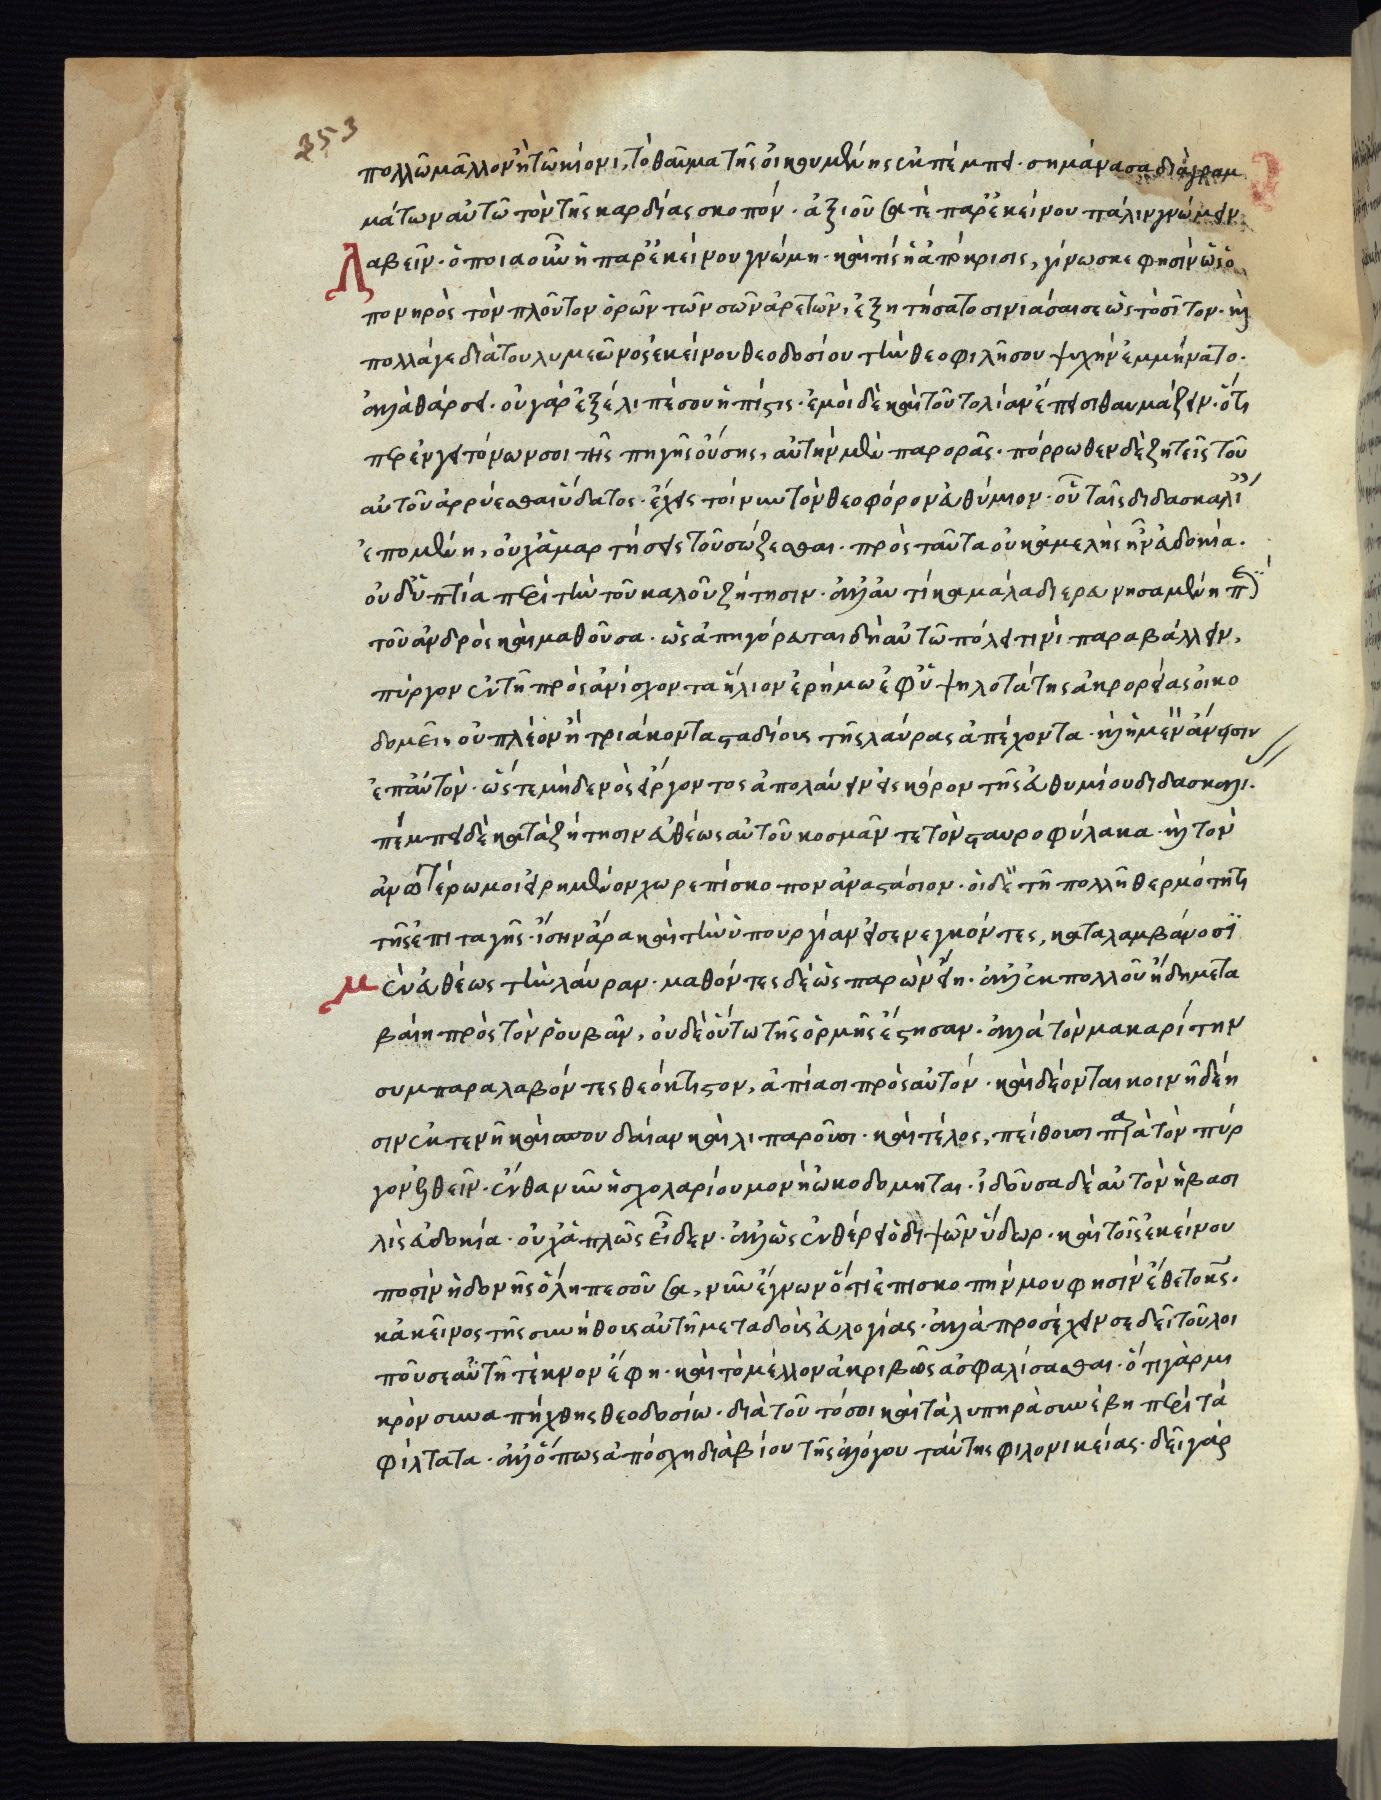 353
πολλῶ μᾶλλον ἢ τῶ κίονι, τὸ θαῦμα τῆς οἰκουμένης ἐκπέμπει· σημάνασα διὰ γραμ
μάτων αὐτῶ τὸν τῆς καρδίας σκοπόν· ἀξιοῦσά τε παρ' ἐκείνου πάλιν γνώμην
Λαβεῖν· ὁποία οὖν ἡ παρ' ἐκείνου γνώμη· καὶ τίς ἡ ἀπόκρισις, γίνωσκε φησὶν ὡς ὁ
πονηρὸς τὸν πλοῦτον ὁρῶν τῶν σῶν ἀρετῶν, ἐξητήσατο σινιάσαι σε ὡς τὸ σῖτον· καὶ
πολλά γε διὰ τοῦ λυμεῶνος ἐκείνου θεοδοσίου τὴν θεοφιλῆ σου ψυχὴν ἐλυμήνατο·
ἀλλὰ θάρσει· οὐ γὰρ ἐξέλιπέ σου ἡ πίστις· ἐμοὶ δὲ καὶ τοῦτο λίαν ἔπεισι θαυμάζειν· ὅτι
περ ἐν γειτόνων σοι τῆς πηγῆς οὔσης, αὐτὴν μὲν παρορᾶς· πόρρωθεν δὲ ζητεῖς τοῦ
αὐτοῦ ἀρρύεσθαι ὕδατος· ἔχεις τοίνυν τὸν θεοφόρον εὐθύμιον· οὗ ταῖς διδασκαλίαις
ἑπομένη, οὐχ ἁμαρτήσεις τοῦ σώζεσθαι· πρὸς ταῦτα οὐκ ἀμελὴς ἦν εὐδοκία·
οὐδ' ὑπτία περὶ τὴν τοῦ καλοῦ ζήτησιν· ἀλλ' αὐτίκα μάλα διερευνησαμένη περὶ
τοῦ ἀνδρὸς καὶ μαθοῦσα· ὡς ἀπηγόρευται δὴ αὐτῶ πόλει τινὶ παραβάλλειν,
πύργον ἐν τῆ πρὸς ἀνίσχοντα ἥλιον ἐρήμω ἐφ' ὑψηλοτάτης ἀκρορείας οἰκο
δομεῖ, οὐ πλέον ἢ τριάκοντα σταδίους τῆς λαύρας ἀπέχοντα· καὶ ἡ μὲν ἄνεισιν
ἐπ' αὐτόν· ὥστε μηδενὸς εἴργοντος ἀπολαύειν εἰς κόρον τῆς εὐθυμίου διδασκαλί·
πέμπει δὲ κατὰ ζήτησιν εὐθέως αὐτοῦ κοσμᾶν τε τὸν σταυροφύλακα· καὶ τὸν
ἀνωτέρω μοι εἰρημένον χωρεπίσκοπον ἀναστάσιον· οἱ δὲ τῆ πολλῆ θερμότητι
τῆς ἐπιταγῆς· ἴσην ἄρα καὶ τὴν ὑπουργίαν εἰσενεγκόντες, καταλαμβάνουσι
Μὲν εὐθέως τὴν λαύραν· μαθόντες δὲ ὡς παρὼν εἴη· ἀλλ' ἐκ πολλοῦ ἤδη μετα
βαίη πρὸς τὸν ῥουβᾶν, οὐδὲ οὕτω τῆς ὁρμῆς ἔστησαν· ἀλλὰ τὸν μακαρίτην
συμπαραλαβόντες θεόκτιστον, ἀπίασι πρὸς αὐτόν· καὶ δέονται κοινῆ δέη
σιν ἐκτενῆ καὶ σπουδαίαν καὶ λιπαροῦσι· καὶ τέλος, πείθουσι παρὰ τὸν πύρ
γον ἐλθεῖν· ἔνθα νῦν ἡ σχολαρίου μονὴ ὠκοδόμηται· ἰδοῦσα δὲ αὐτὸν ἡ βασι
λὶς εὐδοκία· οὐχ ἁπλῶς εἶδεν· ἀλλ' ὡς ἐν θέρει ὁ διψῶν ὕδωρ· καὶ τοῖς ἐκείνου
ποσὶν ἡδονῆς ὅλη πεσοῦσα, νῦν ἔγνων ὅτι ἐπισκοπήν μου φησὶν ἔθετο κύριος·
κἀκεῖνος τῆς συνήθους αὐτῆ μεταδοὺς εὐλογίας· ἀλλὰ προσέχειν σε δεῖ τοῦ λοι
ποῦ σεαυτῆ τέκνον ἔφη· καὶ τὸ μέλλον ἀκριβῶς ἀσφαλίσασθαι· ὅτι γὰρ μι
κρὸν συναπήχθης θεοδοσίω· διὰ τοῦτό σοι καὶ τὰ λυπηρὰ συνέβη περὶ τὰ
φίλτατα· ἀλλ' ὅπως ἀπόσχη διὰ βίου τῆς ἀλόγου ταύτης φιλονικείας· δεῖ γάρ